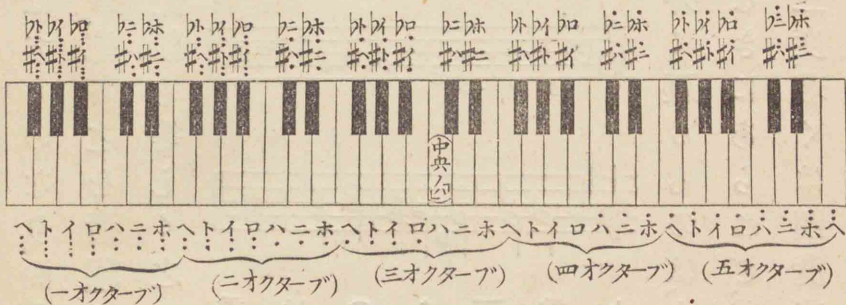 ♭ト ♭イ ♭ロ ♭ニ ♭ホ ♭ト ♭イ ♭ロ ♭ニ ♭ホ ♭ト ♭イ ♭ロ ♭ニ ♭ホ ♭ト ♭イ ♭ロ ♭ニ ♭ホ ♭ト ♭イ ♭ロ ♭ニ ♭ホ
♯ヘ ♯ト ♯イ ♯ハ ♯ニ ♯ヘ ♯ト ♯イ ♯ハ ♯ニ ♯ヘ ♯ト ♯イ ♯ハ ♯ニ ♯ヘ ♯ト ♯イ ♯ハ ♯ニ ♯ヘ ♯ト ♯イ ♯ハ ♯ニ
(中央ノ「ハ」)
ヘトイロハニホヘトイロハニホヘトイロハニホヘトイロハニホヘトイロハニホヘ
(一オクターブ) (二オクターブ) (三オクターブ) (四オクターブ) (五オクターブ)